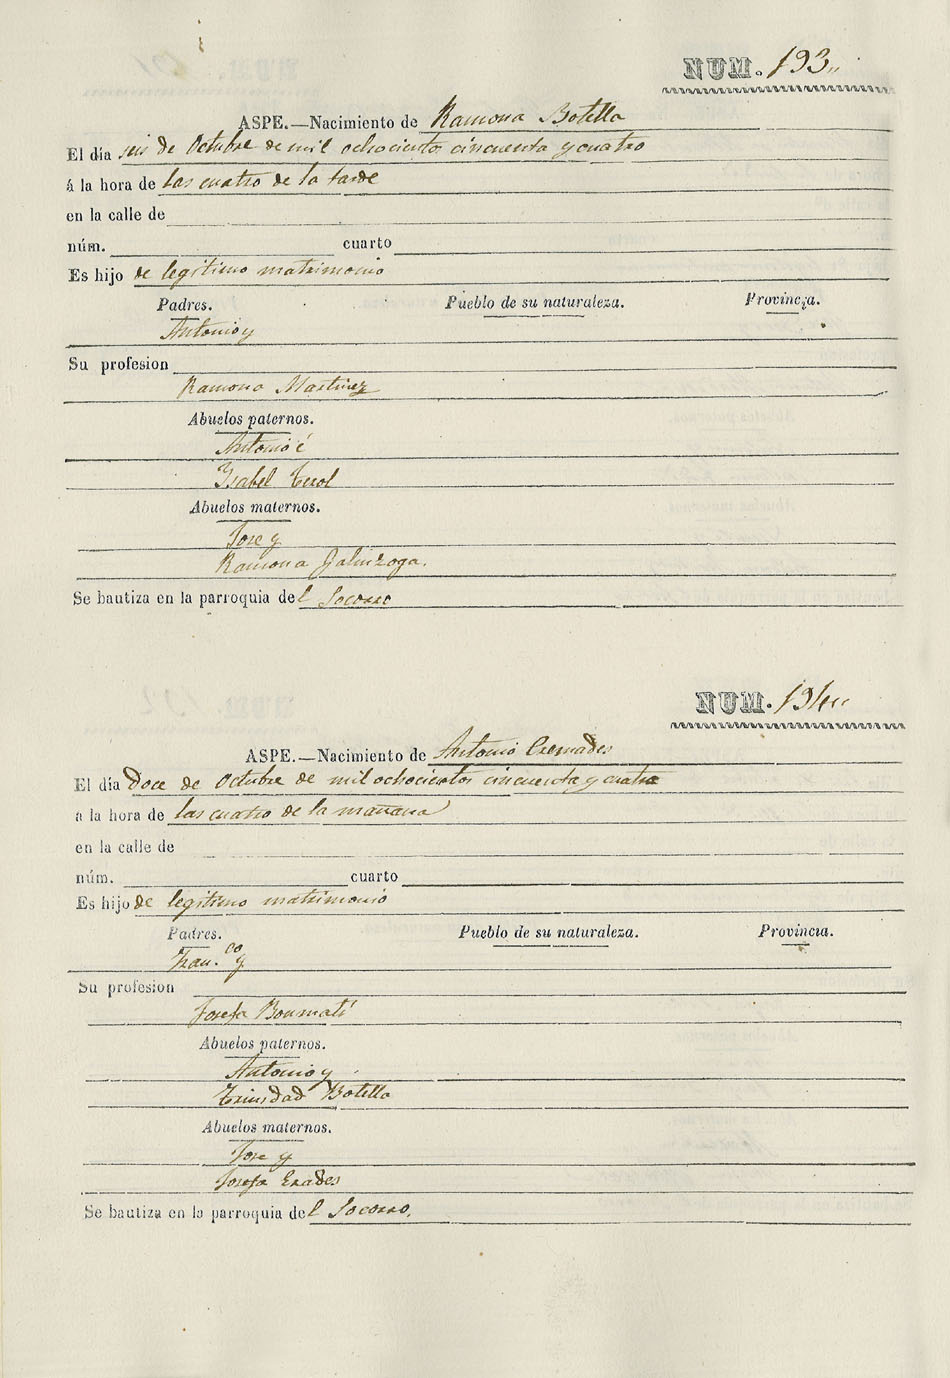 NUM. 193
ASPE.—Nacimiento de Ramona Botella
El día seis de Octubre de mil ochociento cincuenta y cuatro
á la hora de las cuatro de la tarde
en la calle de
núm. cuarto
Es hijo de legitimo matrimonio
Padres. Pueblo de su naturaleza. Provincia.
Antonio y
Su profesion
Ramona Martinez
Abuelos paternos.
Antonio é
Isabel Terol
Abuelos maternos.
Jose y
Ramona Galinzoga.
Se bautiza en la parroquia del Socorro
NUM. 194
ASPE.—Nacimiento de Antonio Cremades
El día Doce de Octubre de mil ochocientos cincuenta y cuatro
a la hora de las cuatro de la mañana
en la calle de
núm. cuarto
Es hijo de legitimo matrimonio
Padres. Pueblo de su naturaleza. Provincia.
Fran.co y
Su profesion
Josefa Bonmatí
Abuelos paternos.
Antonio y
Trinidad Botella
Abuelos maternos.
Jose y
Josefa Erades
Se bautiza en la parroquia del Socorro.